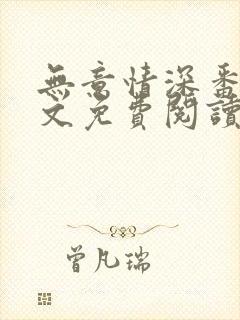 無意情深番
文免費閱讀
曾凡瑞